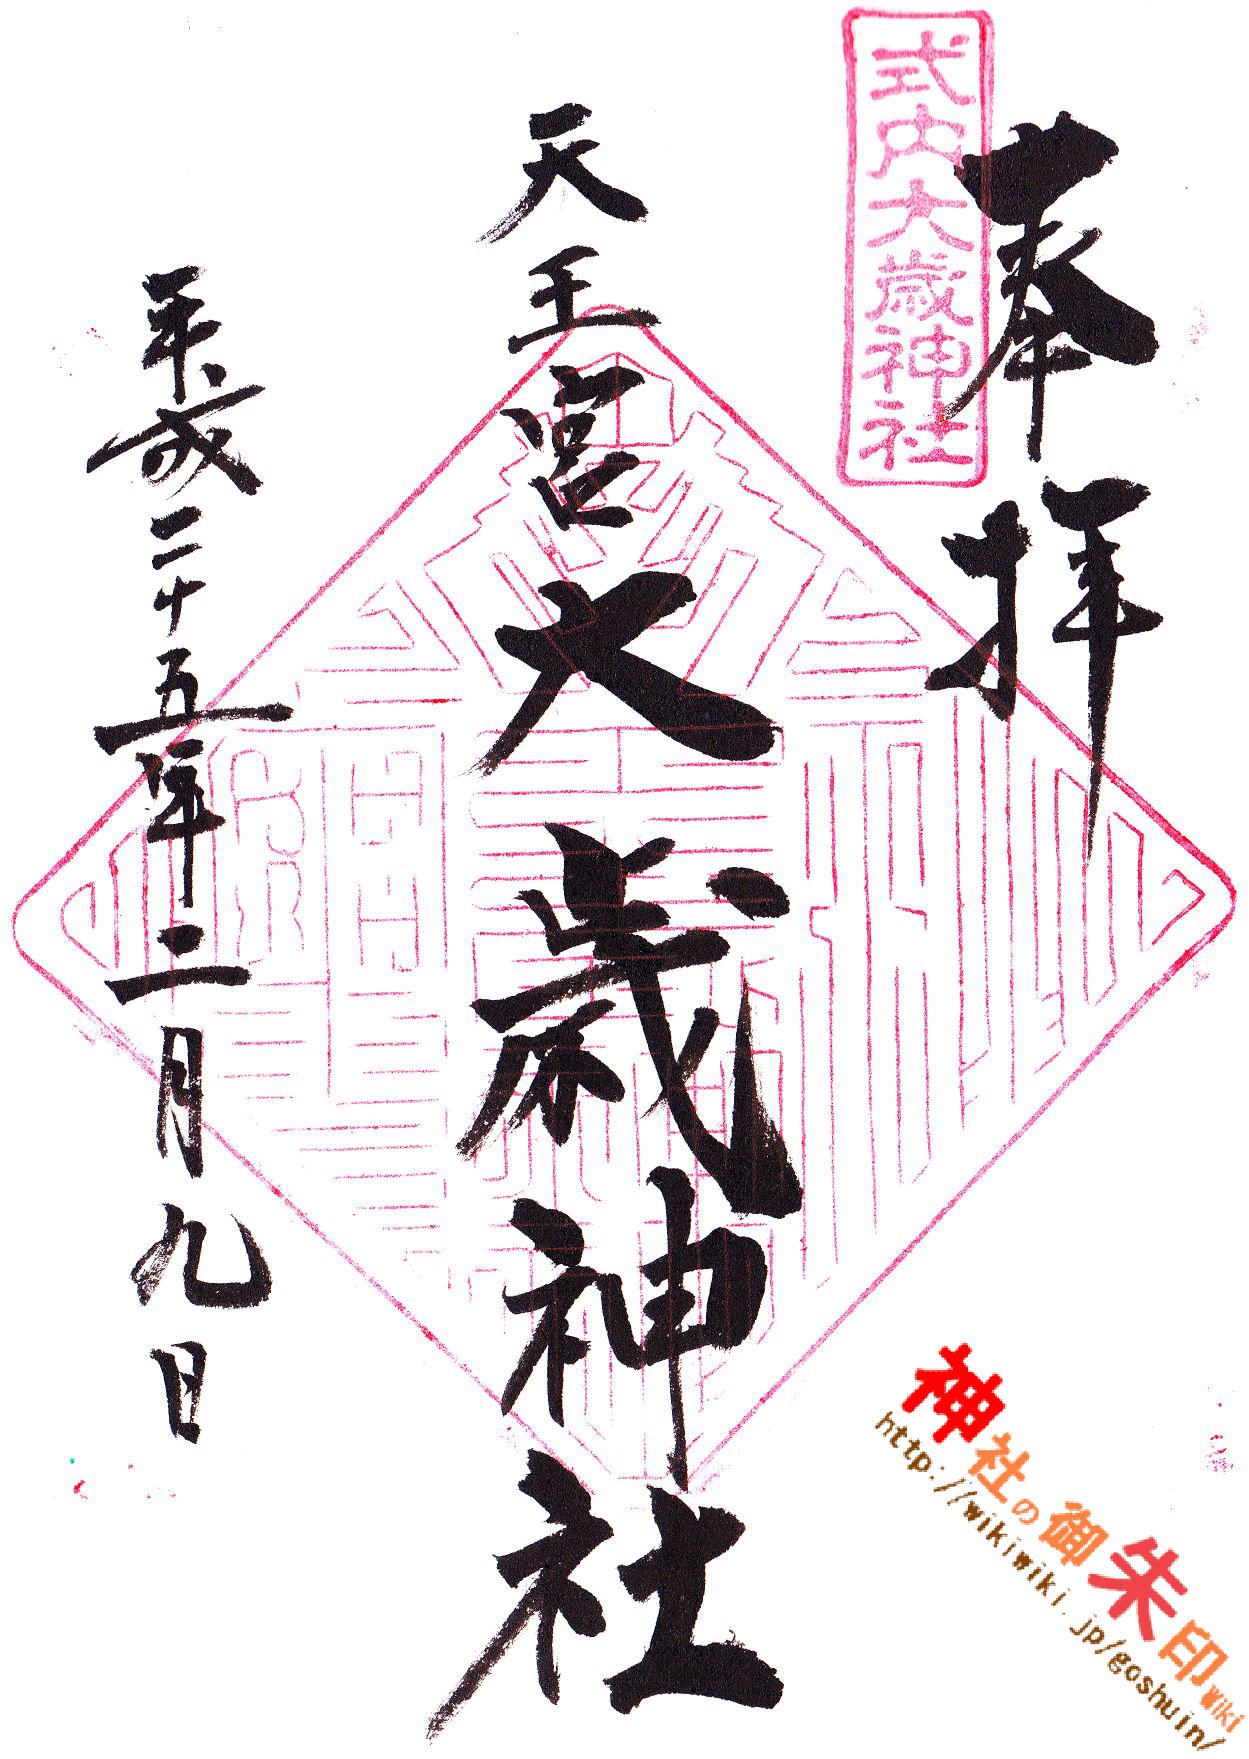 奉拝
式内大歳神社
天王宮大歳神社
平成二十五年二月九日
神社の御朱印wiki
http://wikiwiki.jp/goshuin/